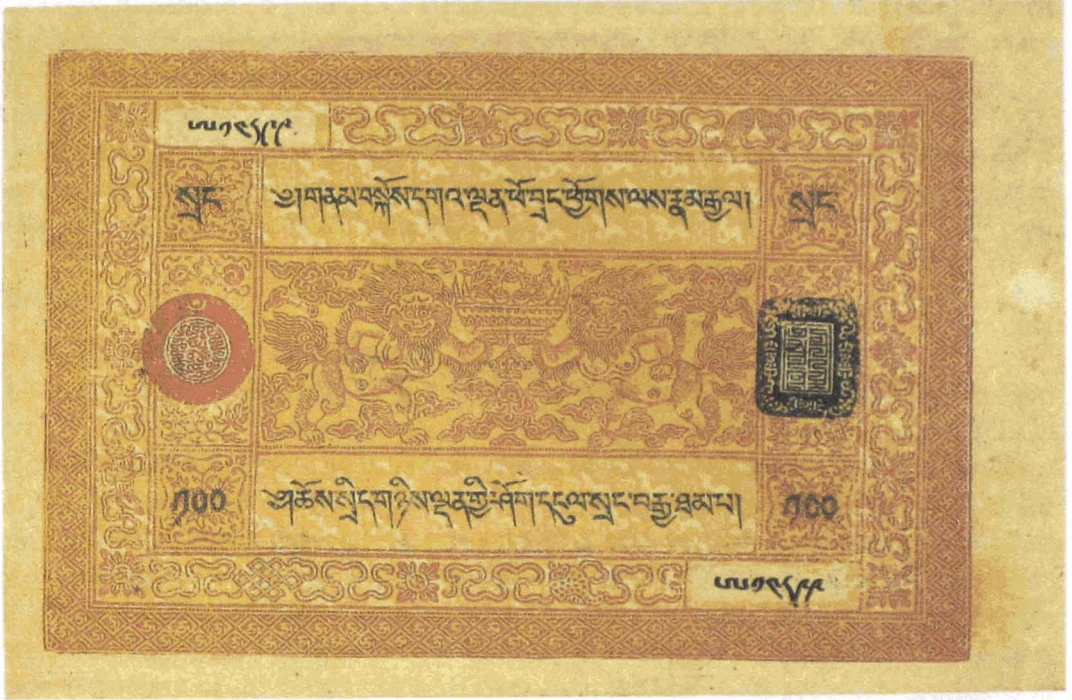 སྲང
༄༅། །གནམ་བསྐོས་དགའ་ལྡན་ཕོ་བྲང་ཕྱོགས་ལས་རྣམ་རྒྱལ།
སྲང
༡༠༠
ཆོས་སྲིད་གཉིས་ལྡན་གྱི་ཤོག་དངུལ་སྲང་བརྒྱ་ཐམ་པ།
༡༠༠